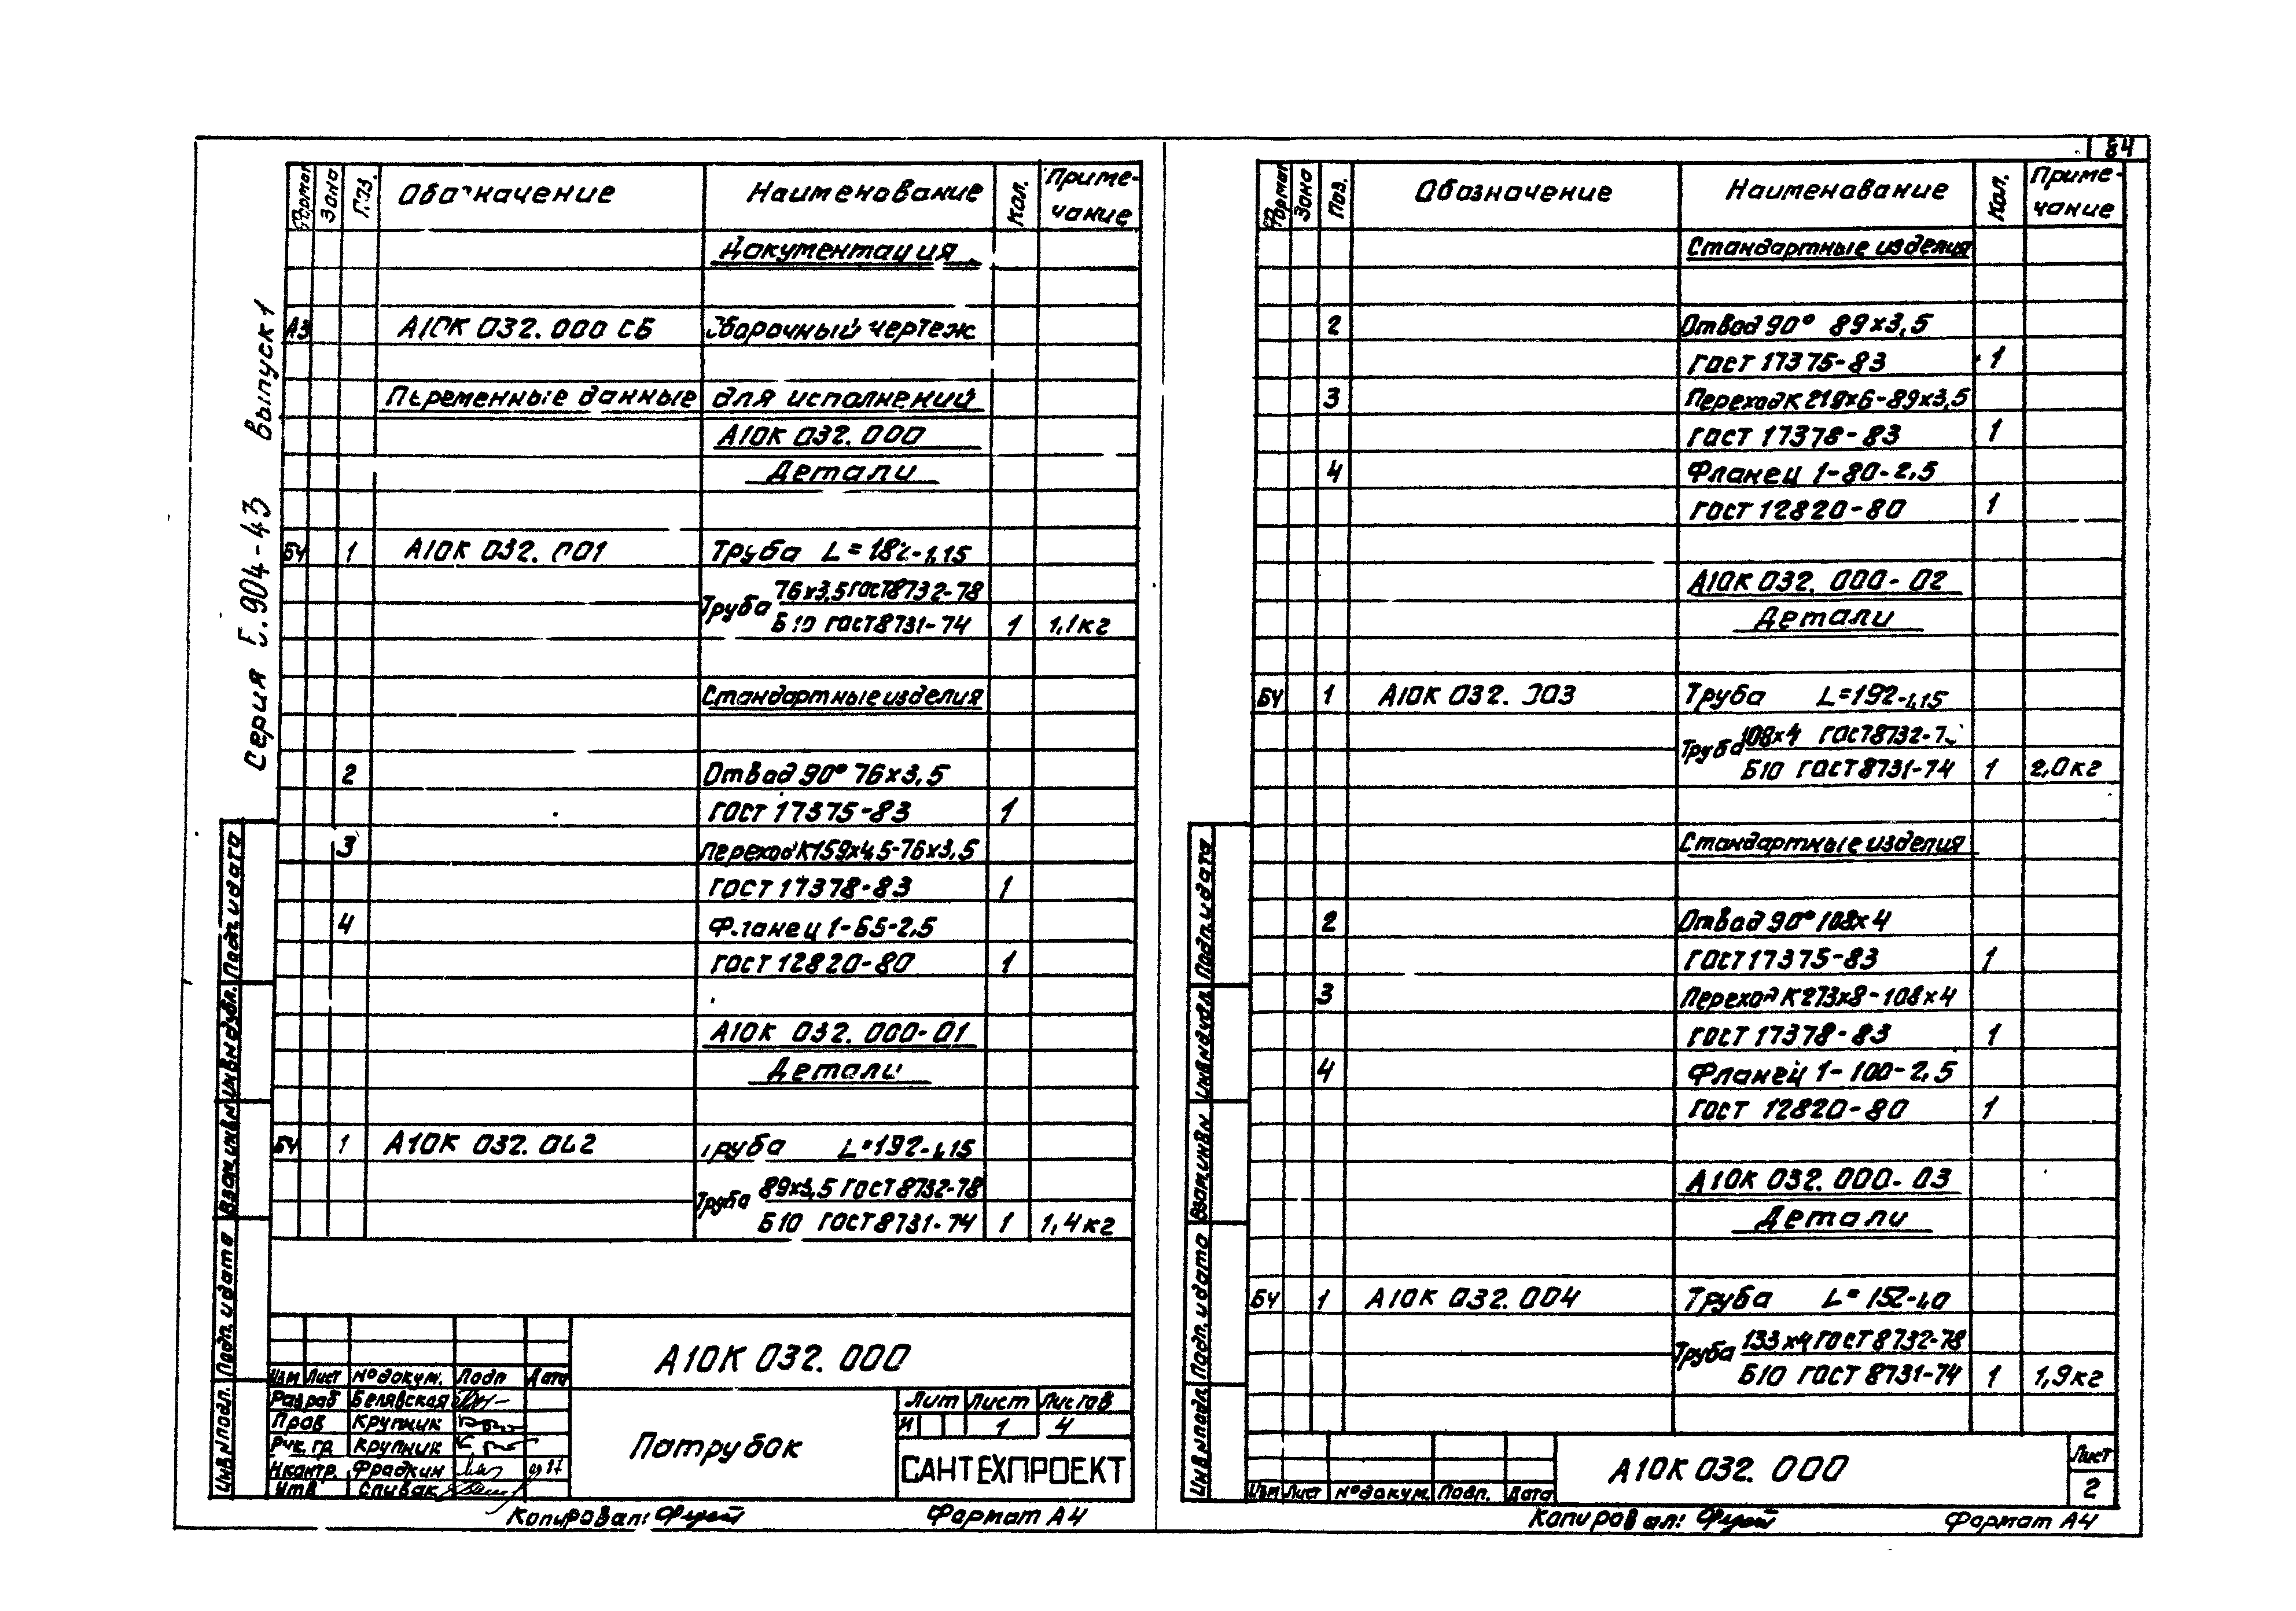 84
Серия 5.904-43 Выпуск 1
Формат Зона Поз. Обозначение Наименование Кол. Приме-
чание
Документация
А3 А10К 032.000 СБ Сборочный чертеж
Переменные данные для исполнений
А10К 032.000
Детали
БЧ 1 А10К 032.001 Труба L=182-1,15
76х3,5 ГОСТ 8732-78
Труба
Б10 ГОСТ 8731-74 1 1,1кг
Стандартные изделия
2 Отвод 90° 76х3,5
ГОСТ 17375-83 1
3 Переход К159х4,5-76х3,5
ГОСТ 17378-83 1
4 Фланец 1-65-2,5
ГОСТ 12820-80 1
А10К 032.000-01
Детали
БЧ 1 А10К 032.002 Труба L=192-1,15
89х3,5 ГОСТ 8732-78
Труба
Б10 ГОСТ 8731-74 1 1,4кг
Подп. и дата
Инв.№ дубл.
Взам.инв.№
Подп. и дата
Инв.№ подл.
А10К 032.000
Изм Лист № докум. Подп Дата
Разраб Белявская
Пров Крупник
Рук. гр. Крупник
Н.контр. Фрадкин
Утв Спивак
Патрубок
Лит Лист Листов
И 1 4
САНТЕХПРОЕКТ
Копировал: Формат А4
Формат Зона Поз. Обозначение Наименование Кол. Приме-
чание
Стандартные изделия
2 Отвод 90° 89х3,5
ГОСТ 17375-83 1
3 Переход К 219х6-89х3,5
ГОСТ 17378-83 1
4 Фланец 1-80-2,5
ГОСТ 12820-80 1
А10К 032.000-02
Детали
БЧ 1 А10К 032.003 Труба L=192-1,15
108х4 ГОСТ 8732-78
Труба
Б10 ГОСТ 8731-74 1 2,0кг
Стандартные изделия
2 Отвод 90° 108х4
ГОСТ 17375-83 1
3 Переход К 273х8-108х4
ГОСТ 17378-83 1
4 Фланец 1-100-2,5
ГОСТ 12820-80 1
А10К 032.000-03
Детали
БЧ 1 А10К 032.004 Труба L=152-1,0
133х4 ГОСТ 8732-78
Труба
Б10 ГОСТ 8731-74 1 1,9кг
Подп. и дата
Инв.№ дубл.
Взам.инв.№
Подп. и дата
Инв.№ подл.
Изм Лист № докум. Подп. Дата
А10К 032.000
Лист
2
Копировал: Формат А4